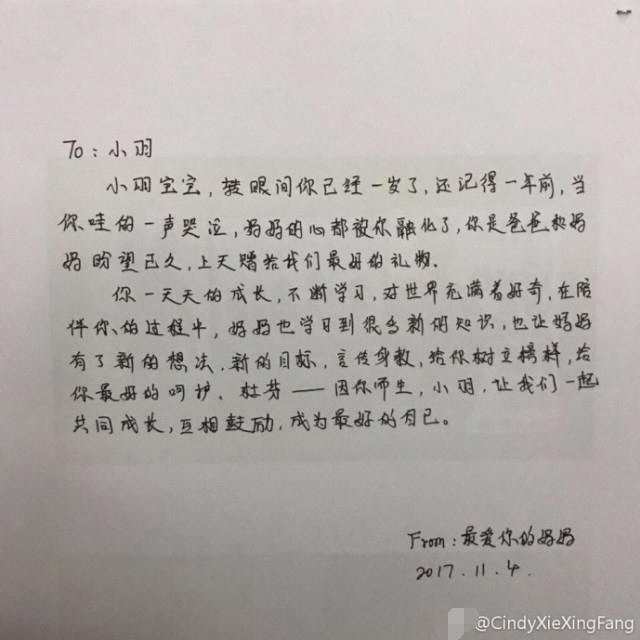 To：小羽
小羽宝宝，转眼间你已经一岁了，还记得一年前，当
你哇的一声哭泣，妈妈的心都被你融化了，你是爸爸和妈
妈盼望已久，上天赠给我们最好的礼物．
你一天天的成长，不断学习，对世界充满着好奇，在陪
伴你的过程中，妈妈也学习到很多新的知识，也让妈妈
有了新的想法、新的目标，言传身教，给你树立榜样，给
你最好的呵护、杜芬——因你而生，小羽，让我们一起
共同成长，互相鼓励，成为最好的自己。
From：最爱你的妈妈
2017．11．4．
@CindyXieXingFang